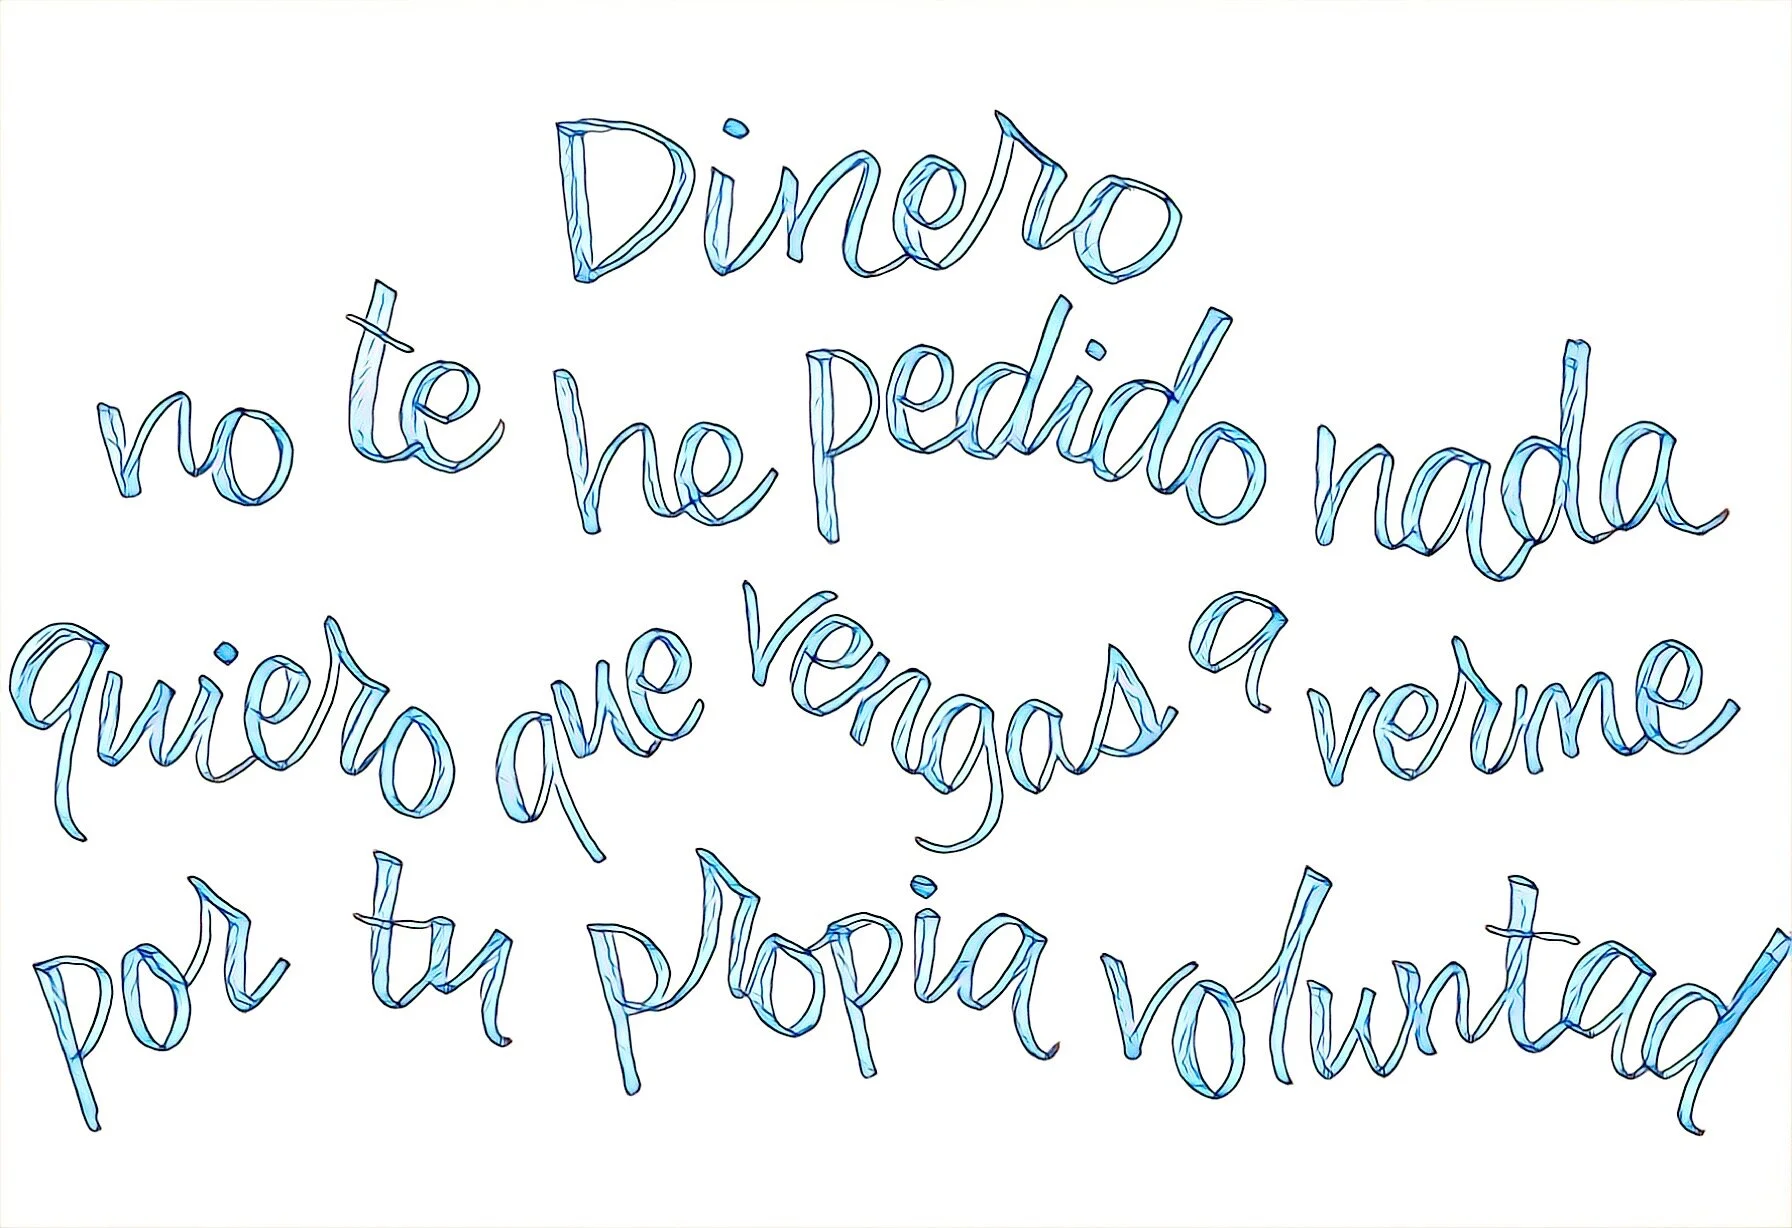 Dinero
no te he pedido nada
quiero que vengas a verme
por tu propia voluntad